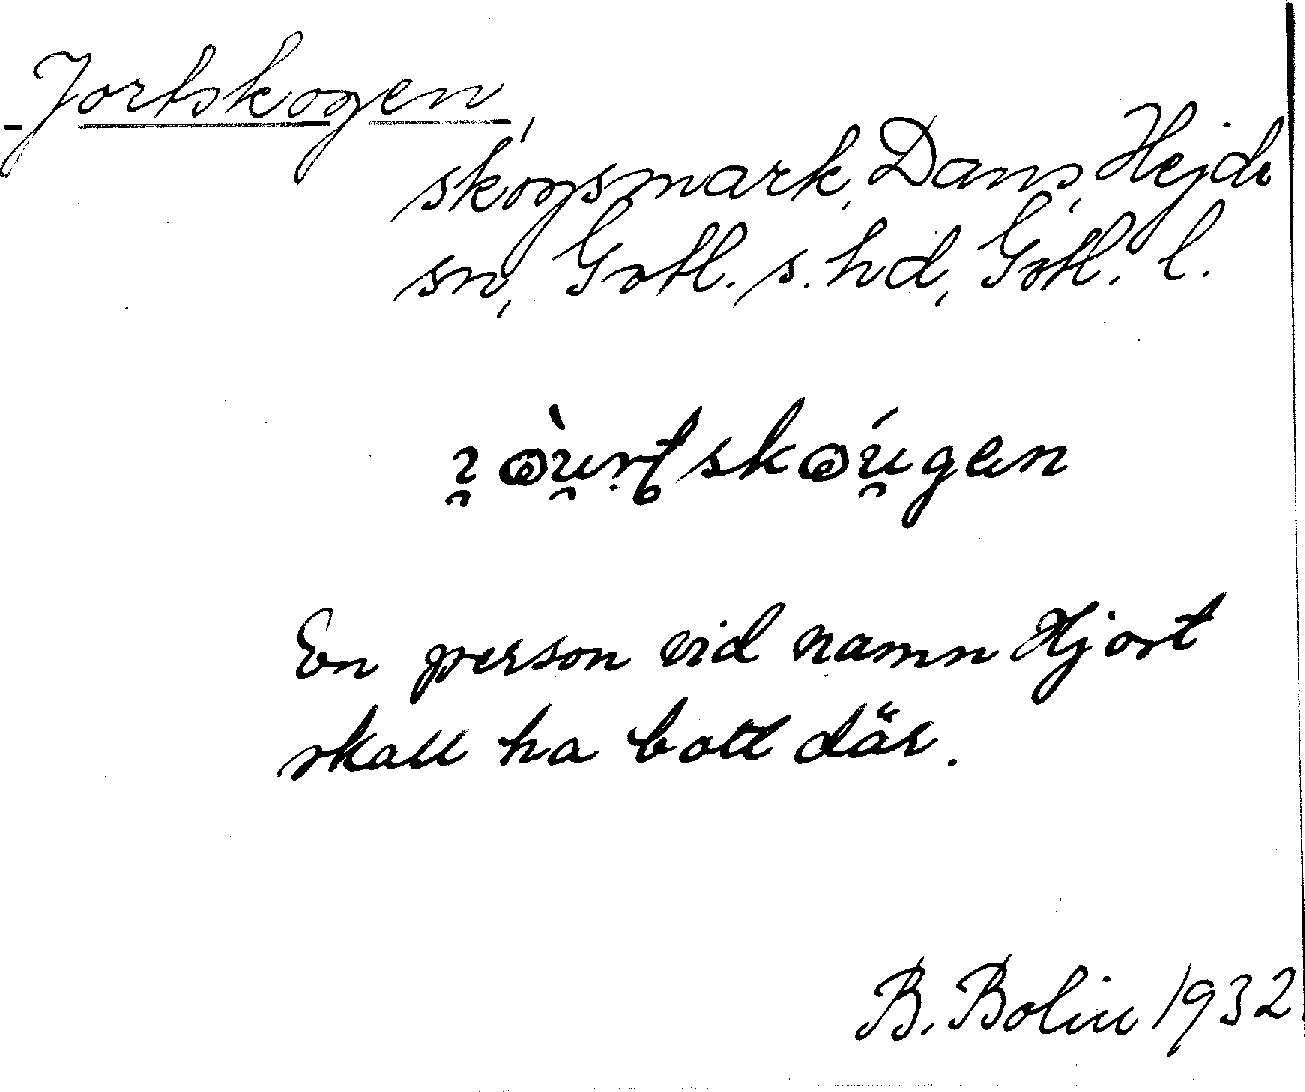 Jortskogen,
skogsmark, Dans, Hejde
sn, Gotl. s. hd, Gotl. l.
En person vid namn Hjort
skall ha bott där.
B. Bolin 1932